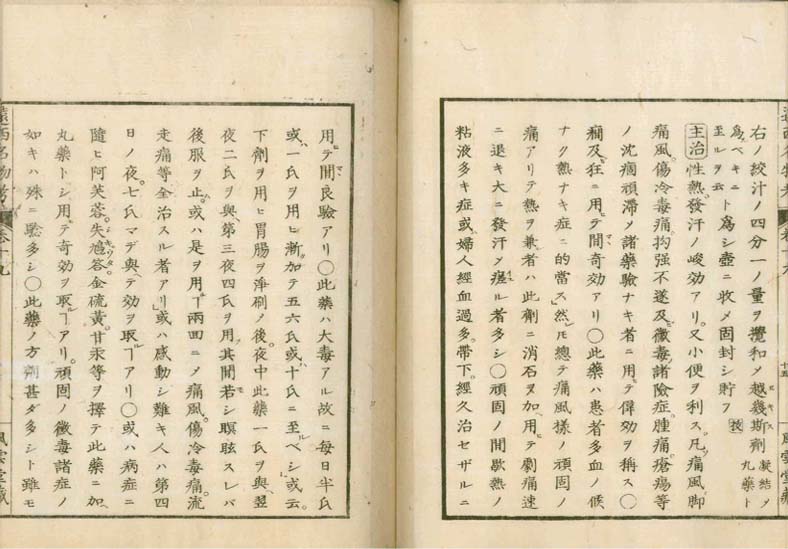 右ノ絞汁ノ四分一ノ量ヲ攪和〆越幾斯劑 凝結ヲ 丸藥ト
爲ベキニト爲シ壺ニ收メ固封シ貯フ
至ルヲ云
主治 性熱。發汗ノ峻効アリ。又小便ヲ利ス。凡痛風。脚
痛風。傷冷毒痛。拘強不遂及黴毒。諸險症。腫痛。瘡瘍等
ノ沈痼頑滯〆諸藥驗ナキ者ニ用テ偉効ヲ稱ス〇
癇及狂ニ用テ間奇効アリ〇此藥ハ患者多血ノ候
ナク熱ナキ症ニ的當ス。然レモ總テ痛風樣ノ頑固ノ
痛アリテ熱ヲ兼者ハ此劑ニ消石ヲ加。用テ劇痛速
ニ退キ大ニ發汗〆瘥ル者多シ〇頑固ノ間歇熱ノ
粘液多キ症。或婦人經血過多。帶下。經久治セザルニ
遠西名物考
卷十九
十五
風雲堂藏
用テ間良驗アリ〇此藥ハ大毒アル故ニ每日半氏
或一氏ヲ用ヒ漸加テ五六氏或十氏ニ至ルベシ。或云。
下劑ヲ用ヒ胃腸ヲ淨刷ノ後。夜中此藥一氏ヲ與。翌
夜二氏ヲ與。第三夜四氏ヲ用。其間若シ瞑眩スレバ
後服ヲ止。或ハ是ヲ用ヿ兩四ニ〆痛風。傷冷毒痛。流
走痛等全治スル者アリ。或ハ感動シ難キ人ハ第四
日ノ夜。七氏マデ與テ効ヲ取ヿアリ〇或ハ病症ニ
隨ヒ阿芙蓉。失鳩答。金硫黃。甘汞等ヲ擇テ此藥ニ加。
丸藥トシ用テ奇効ヲ取ヿアリ。頑固ノ黴毒諸症ノ
如キハ殊ニ驗多シ〇此藥ノ方劑甚ダ多シト雖モ
遠西名物考
卷十九
風雲堂藏